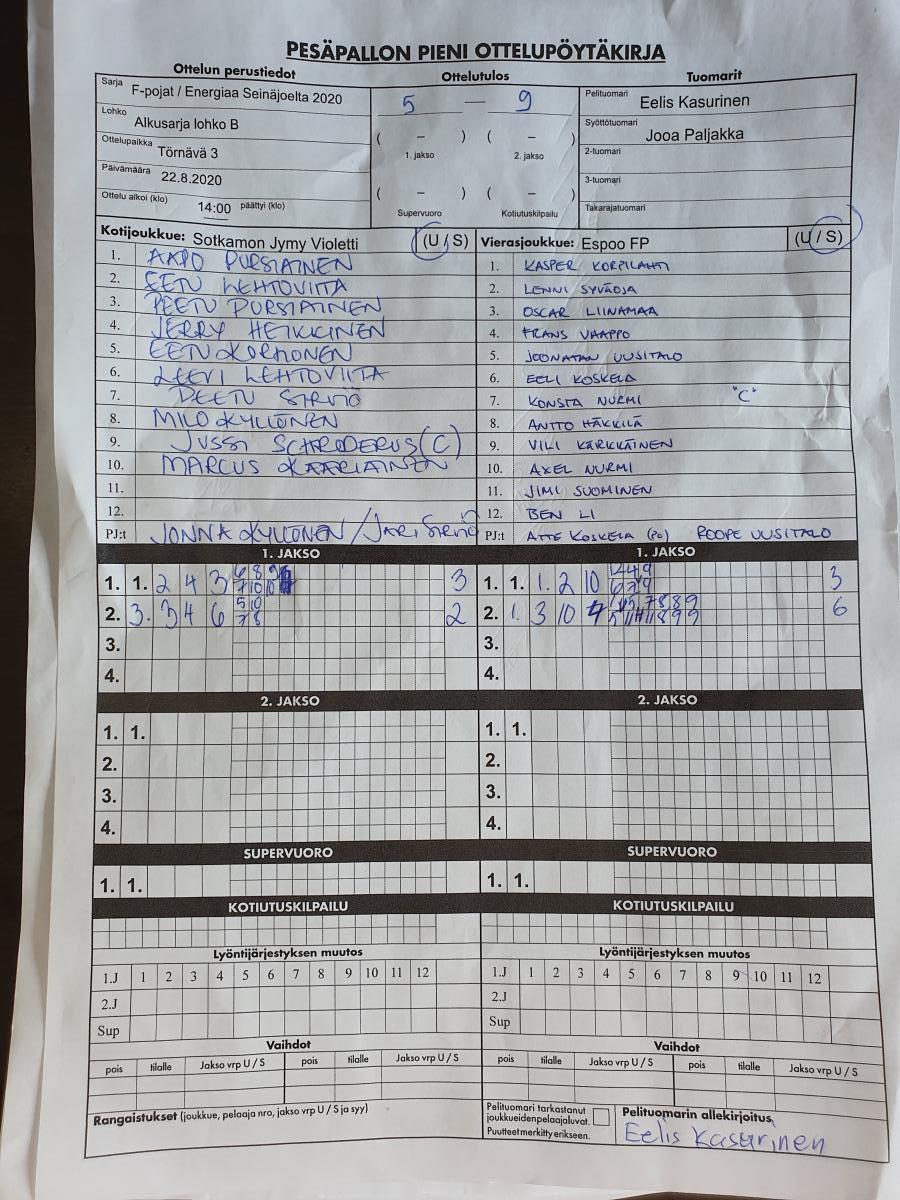 PESÄPALLON PIENI OTTELUPÖYTÄKIRJA
Ottelun perustiedot Ottelutulos Tuomarit
Sarja F-pojat / Energiaa Seinäjoelta 2020
Lohko Alkusarja lohko B
Ottelupaikka Törnävä 3
Päivämäärä 22.8.2020
Ottelu alkoi (klo) 14:00 päättyi (klo)
5 — 9
( – ) ( – )
1. jakso 2. jakso
( – ) ( – )
Supervuoro Kotiutuskilpailu
Pelituomari Eelis Kasurinen
Syöttötuomari Jooa Paljakka
2-tuomari
3-tuomari
Takarajatuomari
Kotijoukkue: Sotkamon Jymy Violetti (U / S)
1. AAPO PURSIAINEN
2. EETU LEHTOVIITA
3. PEETU PURSIAINEN
4. JERRY HEIKKINEN
5. EETU KORHONEN
6. LEEVI LEHTOVIITA
7. PEETU SIRVIÖ
8. MILO KYLLÖNEN
9. JUSSI SCHRODERUS (C)
10. MARCUS KAARIAINEN
11.
12.
PJ:t JONNA KYLLÖNEN / JARI SIRVIÖ
Vierasjoukkue: Espoo FP (U / S)
1. KASPER KORPILAHTI
2. LENNI SYVÄOJA
3. OSCAR LIINAMAA
4. FRANS VAAPPO
5. JOONATAN UUSITALO
6. EELI KOSKELA
7. KONSTA NURMI "C"
8. ANTTO HÄKKILÄ
9. VILI KÄRKKÄINEN
10. AXEL NURMI
11. JIMI SUOMINEN
12. BEN LI
PJ:t ATTE KOSKELA (PO) ROOPE UUSITALO
1. JAKSO 1. JAKSO
1. 1. 2 4 3 3
2. 3. 3 4 6 5 10 7 8 2
3.
4.
1. 1. 1. 2 10 3
2. 1. 3 10 4 6
3.
4.
2. JAKSO 2. JAKSO
1. 1. 1. 1.
2. 2.
3. 3.
4. 4.
SUPERVUORO SUPERVUORO
1. 1. 1. 1.
KOTIUTUSKILPAILU KOTIUTUSKILPAILU
Lyöntijärjestyksen muutos Lyöntijärjestyksen muutos
1.J 1 2 3 4 5 6 7 8 9 10 11 12 1.J 1 2 3 4 5 6 7 8 9 10 11 12
2.J 2.J
Sup Sup
Vaihdot Vaihdot
pois tilalle Jakso vrp U / S pois tilalle Jakso vrp U / S pois tilalle Jakso vrp U / S pois tilalle Jakso vrp U / S
Rangaistukset (joukkue, pelaaja nro, jakso vrp U / S ja syy)
Pelituomari tarkastanut
joukkueidenpelaajaluvat.
Puutteet merkitty erikseen.
Pelituomarin allekirjoitus
Eelis Kasurinen